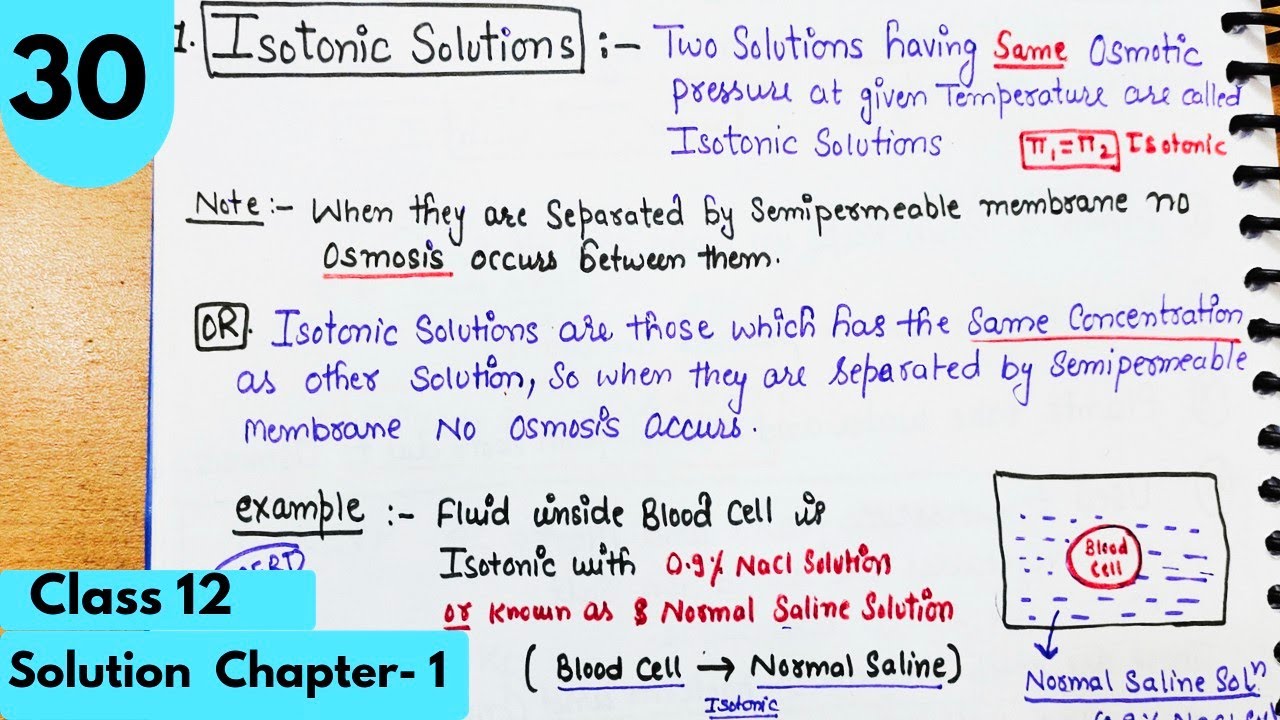 30
1. Isotonic Solutions :- Two Solutions having Same Osmotic
pressure at given Temperature are called
Isotonic Solutions π₁=π₂ Isotonic
Note :- When they are Separated by Semipermeable membrane no
Osmosis occurs between them.
OR. Isotonic Solutions are those which has the Same Concentration
as other Solution, So when they are Separated by Semipermeable
membrane No Osmosis occurs.
example :- Fluid inside Blood Cell is
Isotonic with 0.9% NaCl Solution
or known as Normal Saline Solution
(Blood Cell → Normal Saline)
Isotonic
Blood
Cell
Normal Saline Solⁿ
Class 12
Solution Chapter- 1